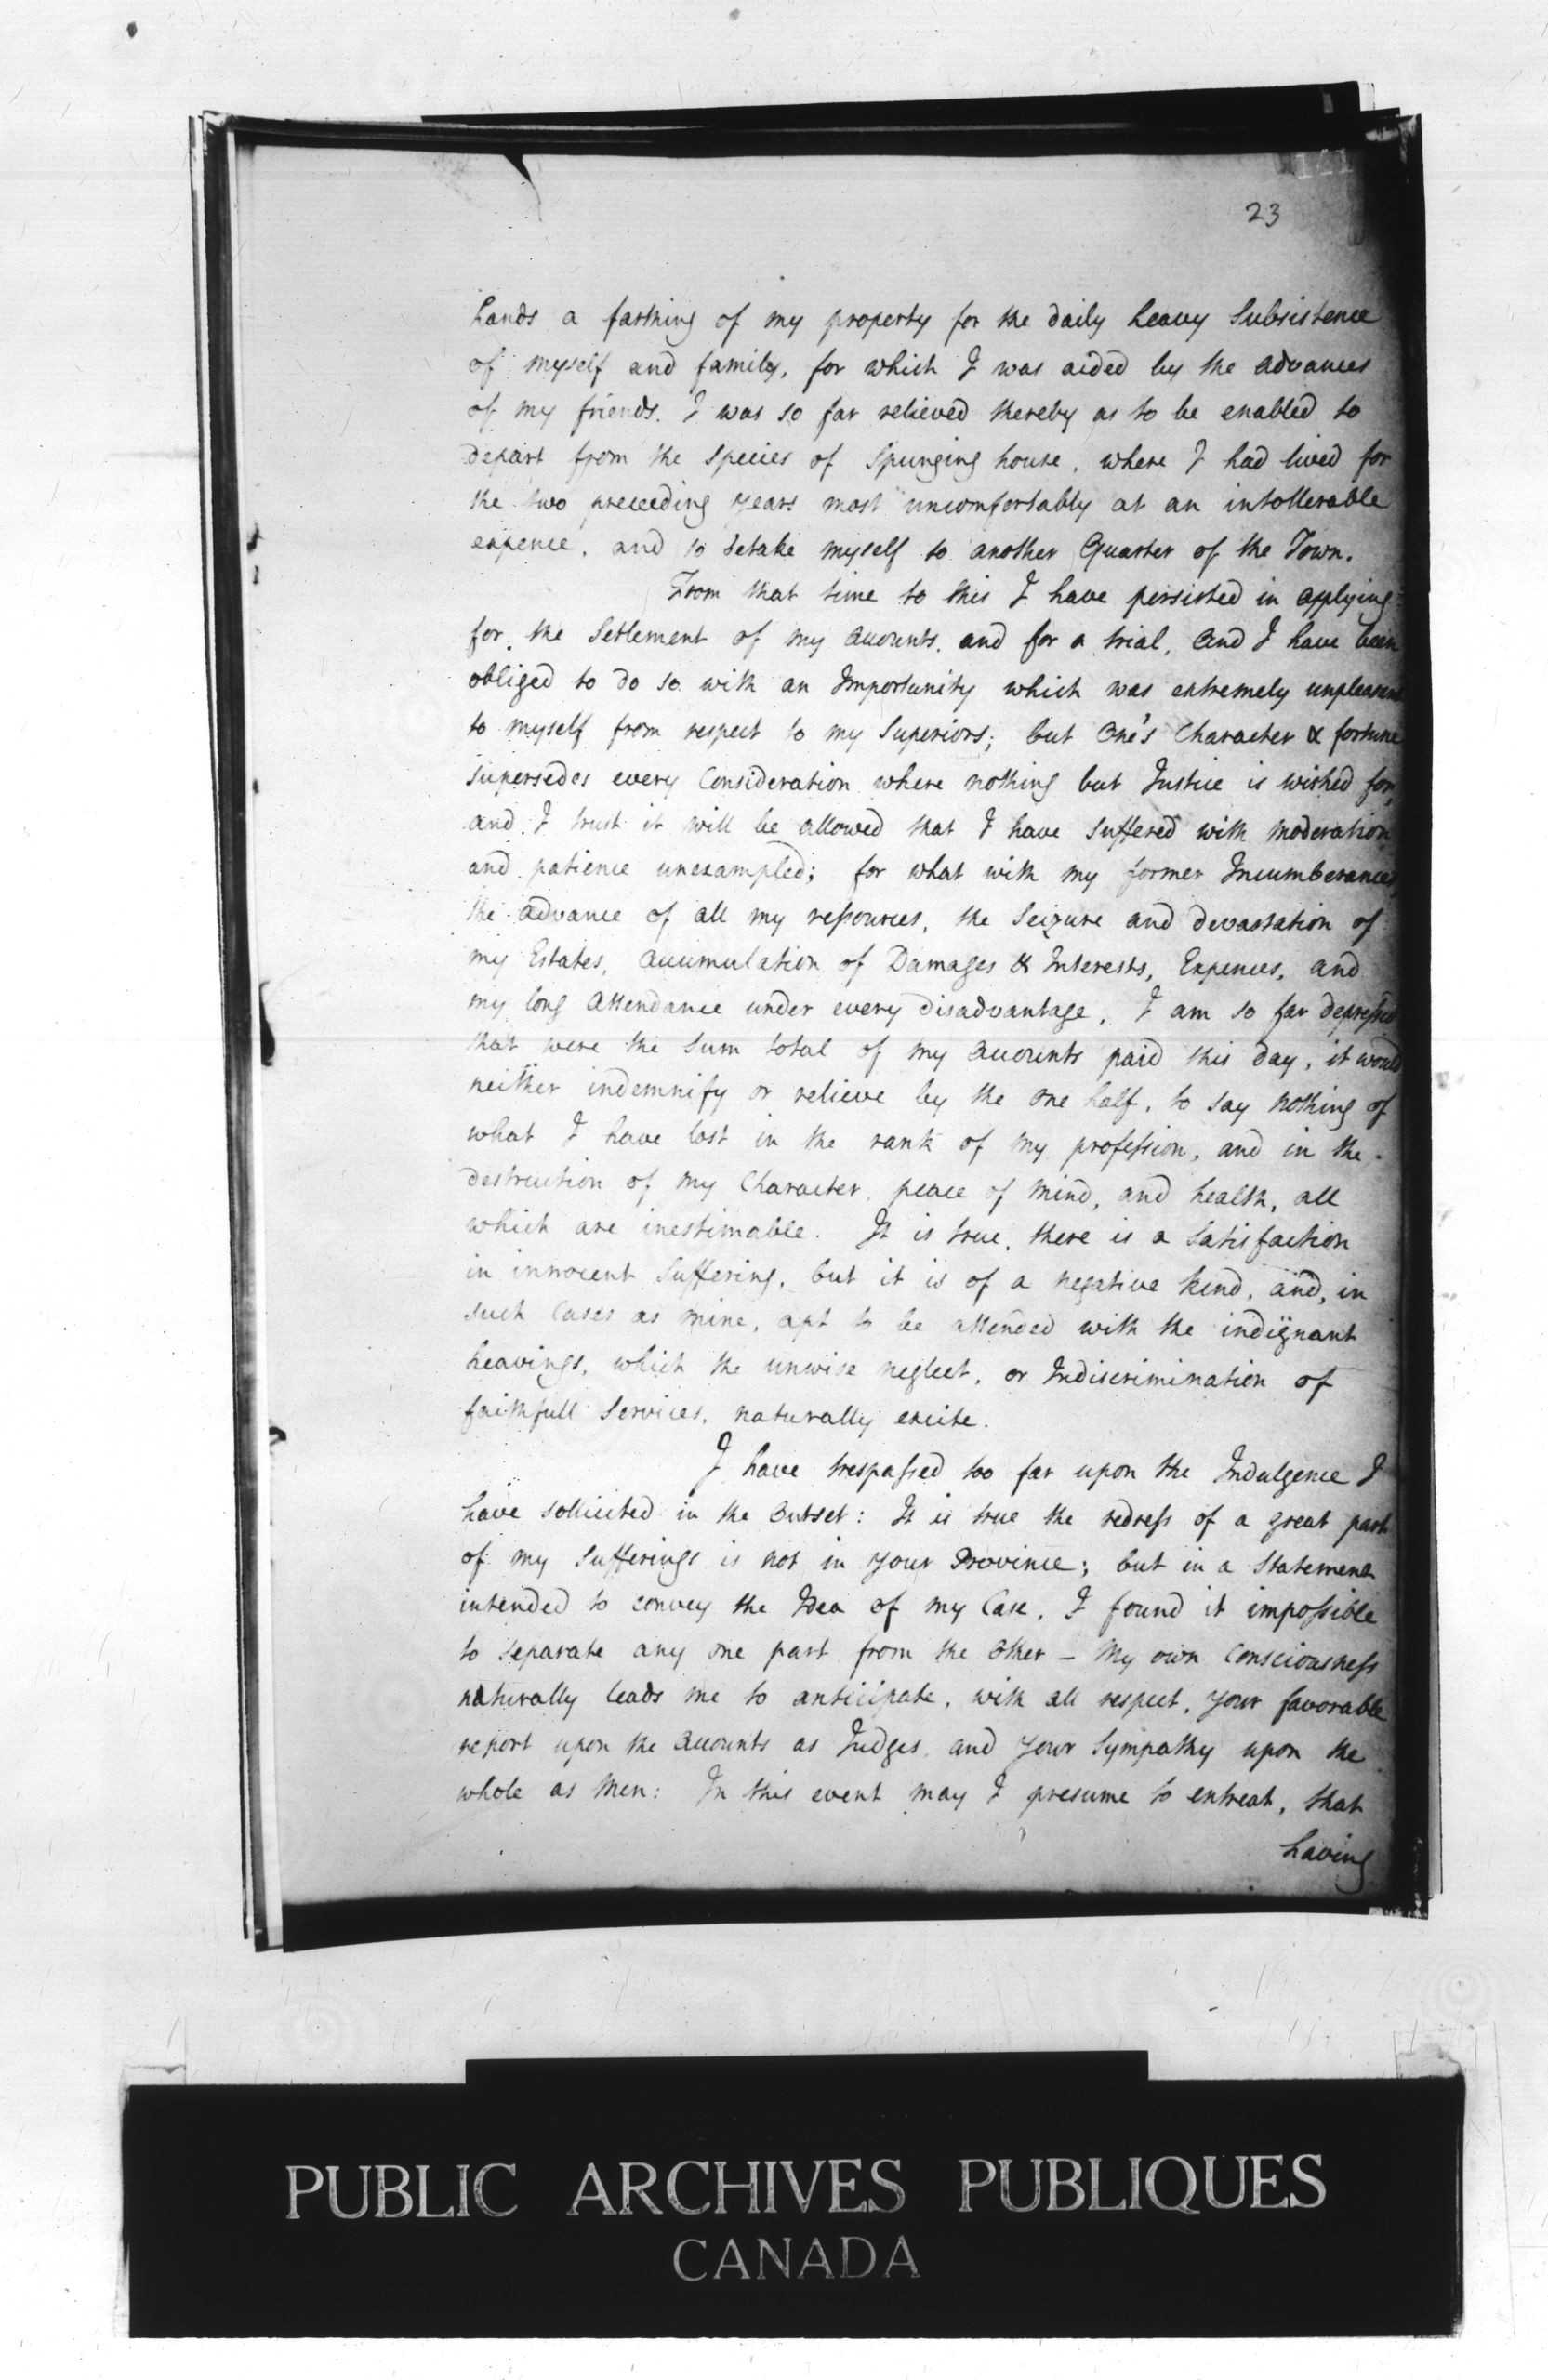 141
23
hands a farthing of my property for the daily heavy Subsistence
of myself and family, for which I was aided by the advances
of my friends. I was so far relieved thereby as to be enabled to
depart from the Species of Spunging house, where I had lived for
the two preceeding years most uncomfortably at an intollerable
expence, and to betake myself to another Quarter of the Town.
From that time to this I have persisted in applying
for the Settlement of my Accounts, and for a trial, And I have been
obliged to do so with an Importunity which was extremely unpleasant
to myself from respect to my Superiors; but One's Character & fortune
supersedes every Consideration where nothing but Justice is wished for,
and I trust it will be allowed that I have suffered with moderation
and patience unexampled; for what with my former Incumberances,
the advance of all my resources, the Seizure and devastation of
my Estates, Accumulation of Damages & Interests, Expences, and
my long Attendance under every disadvantage, I am so far depressed
that were the Sum total of my Accounts paid this day, it would
neither indemnify or relieve by the one half, to say nothing of
what I have lost in the rank of my profession, and in the
destruction of my Character, peace of mind, and health, all
which are inestimable. It is true, there is a Satisfaction
in innocent Suffering, but it is of a negative kind, and, in
such Cases as mine, apt to be attended with the indignant
heavings, which the unwise neglect, or Indiscrimination of
faithfull Services, naturally excite.
I have trespassed too far upon the Indulgence I
have sollicited in the Outset: It is true the redress of a great part
of my Sufferings is not in your Province; but in a Statement
intended to convey the Idea of my Case, I found it impossible
to separate any one part from the Other – My own Consciousness
naturally leads me to anticipate, with all respect, your favorable
report upon the Accounts as Judges, and your Sympathy upon the
whole as Men: In this event may I presume to entreat, that
having
PUBLIC ARCHIVES PUBLIQUES
CANADA